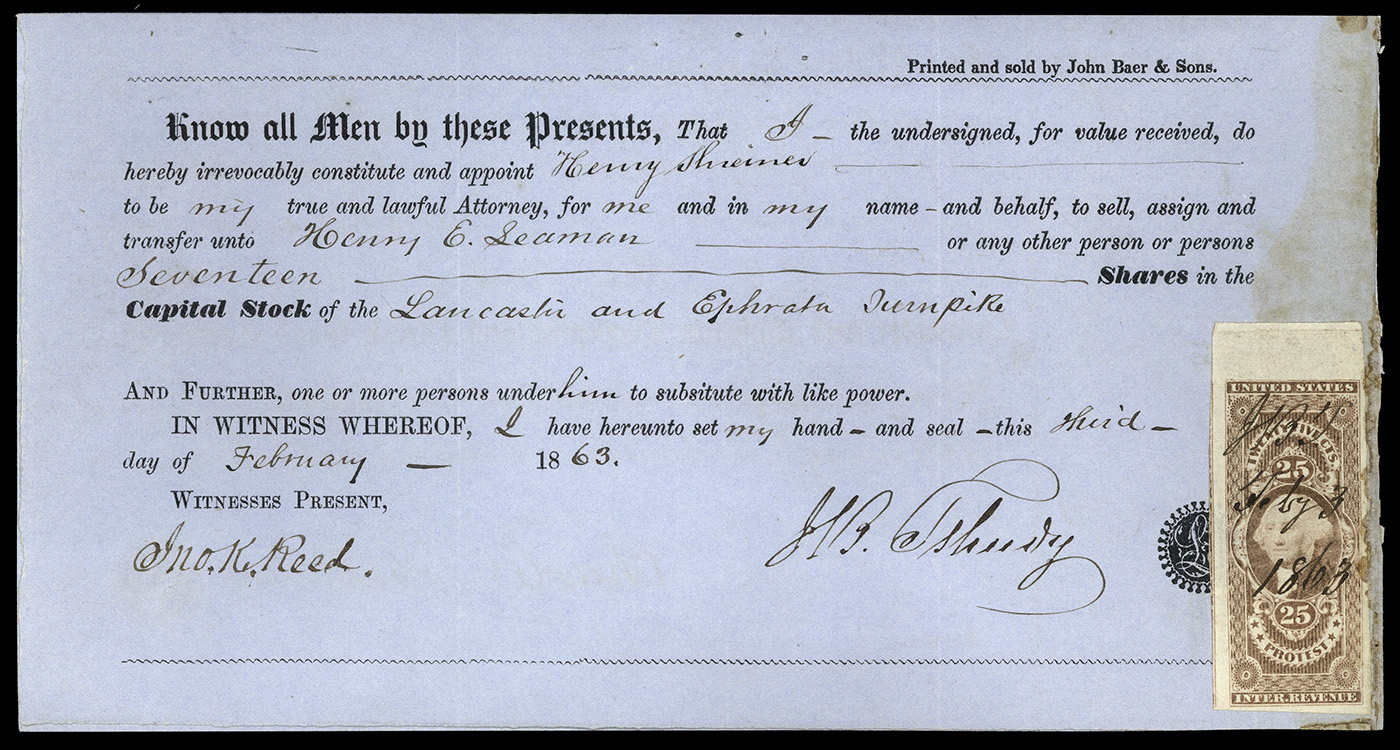 Printed and sold by John Baer & Sons.
Know all Men by these Presents, That I - the undersigned, for value received, do
hereby irrevocably constitute and appoint Henry Shreiner
to be my true and lawful Attorney, for me and in my name - and behalf, to sell, assign and
transfer unto Henry E. Leaman or any other person or persons
Seventeen Shares in the
Capital Stock of the Lancaster and Ephrata Turnpike
And Further, one or more persons under him to subsitute with like power.
IN WITNESS WHEREOF, I have hereunto set my hand - and seal - this third -
day of February - 1863.
Witnesses Present,
Jno. K. Reed.
J B. Tshudy
UNITED STATES
TWENTY FIVE CTS.
25
Feby 3
1863
25
PROTEST
INTER. REVENUE